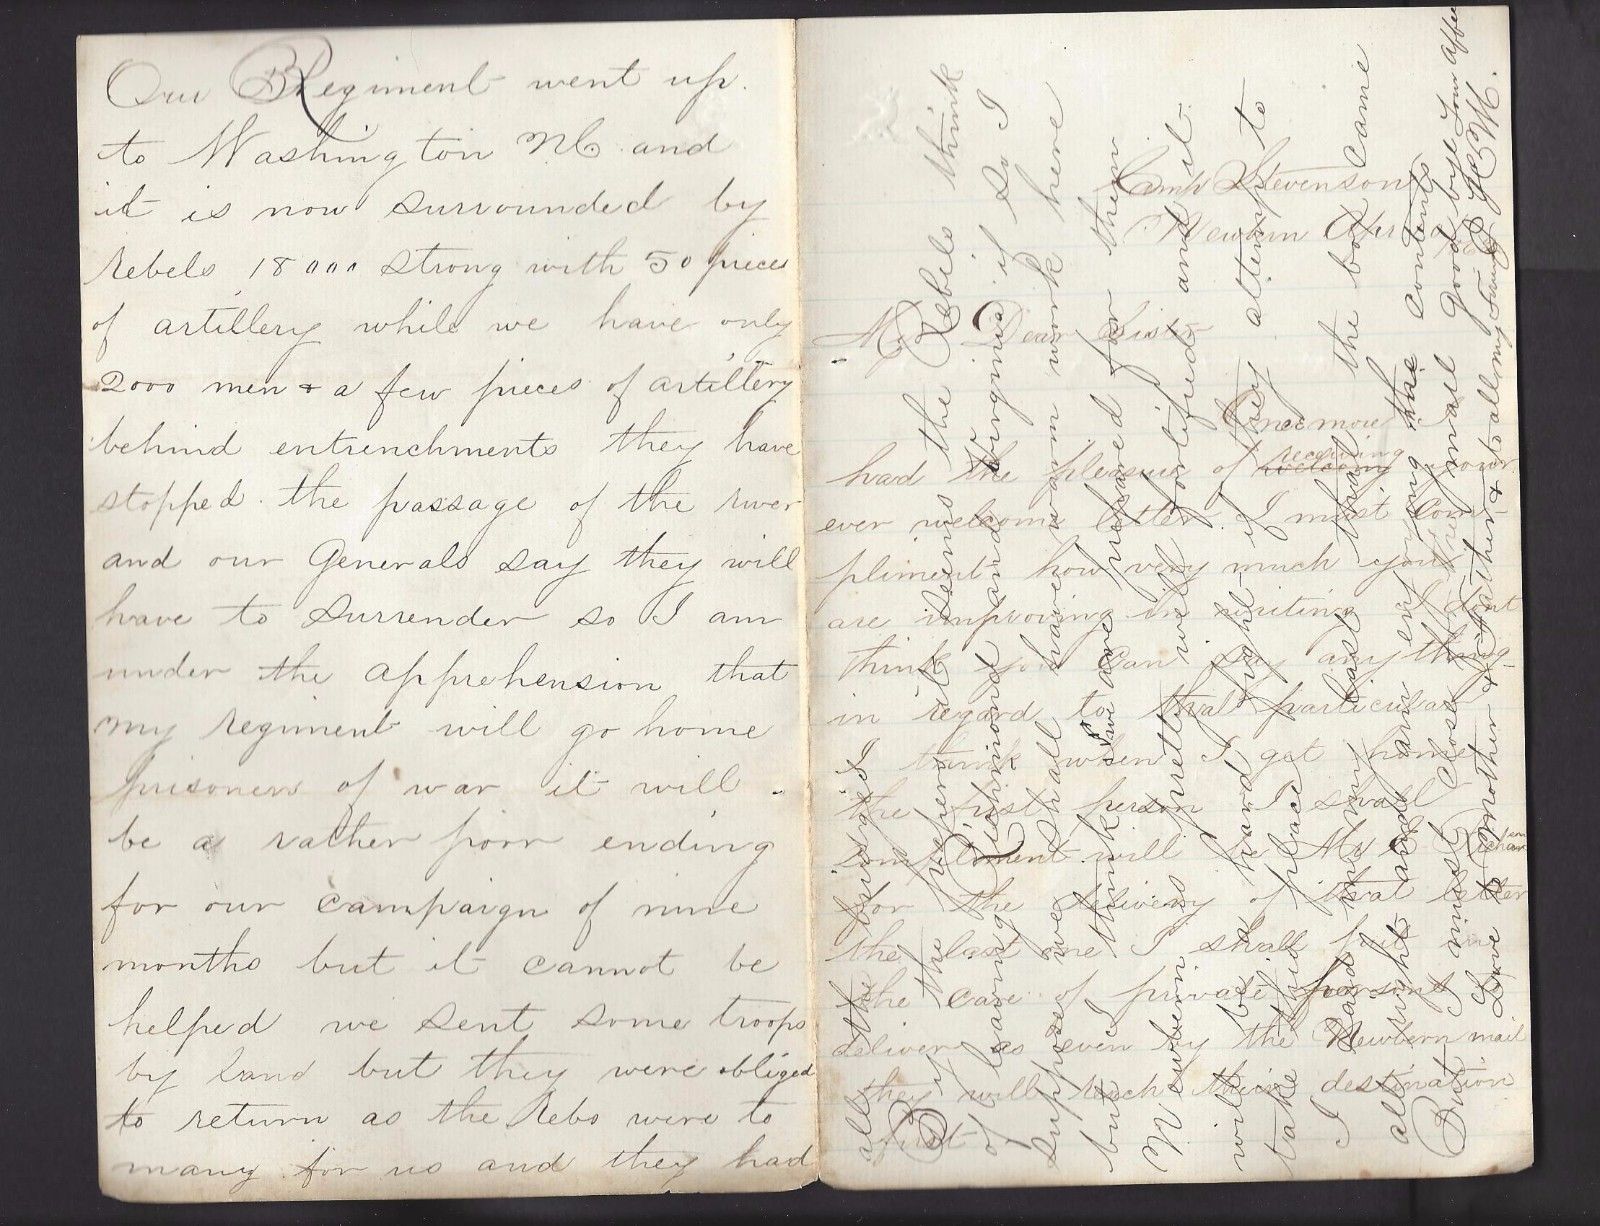 Our Regiment went up
to Washington NC and
it is now surrounded by
rebels 18000 strong with 50 pieces
of artillery while we have only
2000 men & a few pieces of artillery
behind entrenchments they have
stopped the passage of the river
and our Generals say they will
have to surrender so I am
under the apprehension that
my regiment will go home
prisoners of war it will
be a rather poor ending
for our campaign of nine
months but it cannot be
helped we sent some troops
by land but they were obliged
to return as the Rebs were to
many for us and they had
Camp Stevenson
Newbern
My Dear Sister
Once more I
had the pleasure of receiving your
ever welcome letter I must com-
pliment how very much you
are improving in writing I dont
think you can say anything
in regard to that particular
I think when I get home
the first person I shall
compliment will be Mr E
for the delivery of that letter
the last one I shall put in
the care of private persons
deliver as even by the Newbern mail
they will reach their destination
first
all the bridges
By the papers it seems the Rebels think
of leaving Richmond and Virginia if so I
suppose we shall have warm work here
but I think we are prepared for them
Newbern is pretty well fortified and it
will be a hard fight if they attempt to
take this place
I said in my last that the box came
all right and am enjoying the contents
But I must close as the mail Good bye Your
Love to Mother & Father & to all my friends